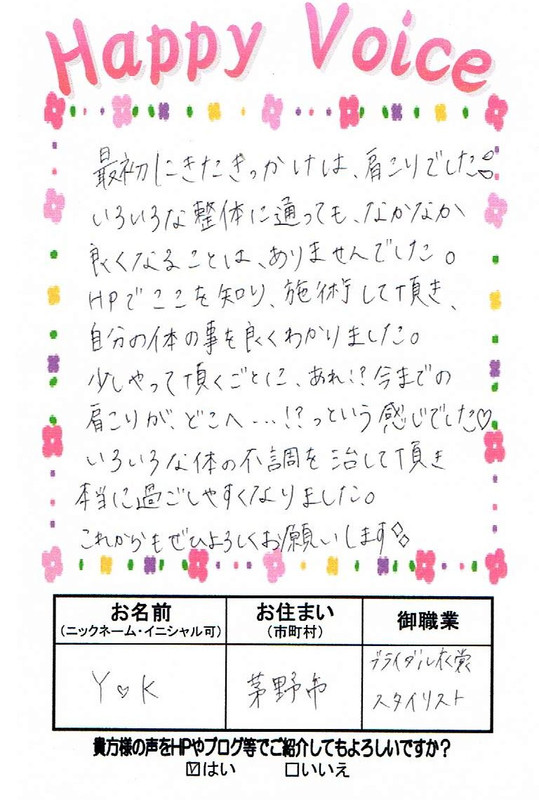 Happy Voice
最初にきたきっかけは、肩こりでした。
いろいろな整体に通っても、なかなか
良くなることは、ありませんでした。
HPでここを知り、施術して頂き、
自分の体の事を良くわかりました。
少しやって頂くごとに、あれ!?今までの
肩こりが、どこへ…!?っという感じでした♡
いろいろな体の不調を治して頂き
本当に過ごしやすくなりました。
これからもぜひよろしくお願いします
お名前 お住まい 御職業
(ニックネーム・イニシャル可) (市町村)
Y♡K 茅野市 ブライダル衣裳
スタイリスト
貴方様の声をHPやブログ等でご紹介してもよろしいですか?
☑はい □いいえ